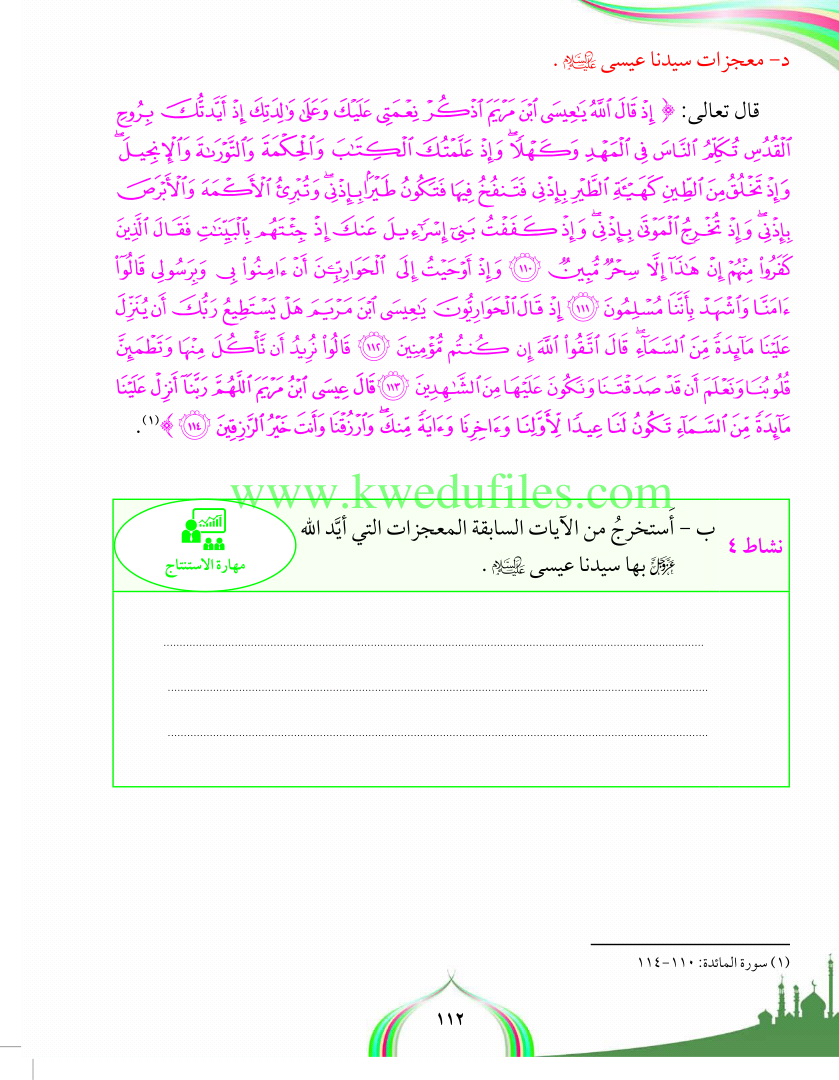 د- معجزات سيدنا عيسى عليه السلام .
قال تعالى: ﴿ إِذْ قَالَ ٱللَّهُ يَٰعِيسَى ٱبْنَ مَرْيَمَ ٱذْكُرْ نِعْمَتِى عَلَيْكَ وَعَلَىٰ وَٰلِدَتِكَ إِذْ أَيَّدتُّكَ بِرُوحِ
ٱلْقُدُسِ تُكَلِّمُ ٱلنَّاسَ فِى ٱلْمَهْدِ وَكَهْلًا ۖ وَإِذْ عَلَّمْتُكَ ٱلْكِتَٰبَ وَٱلْحِكْمَةَ وَٱلتَّوْرَىٰةَ وَٱلْإِنجِيلَ ۖ
وَإِذْ تَخْلُقُ مِنَ ٱلطِّينِ كَهَيْـَٔةِ ٱلطَّيْرِ بِإِذْنِى فَتَنفُخُ فِيهَا فَتَكُونُ طَيْرًۢا بِإِذْنِى ۖ وَتُبْرِئُ ٱلْأَكْمَهَ وَٱلْأَبْرَصَ
بِإِذْنِى ۖ وَإِذْ تُخْرِجُ ٱلْمَوْتَىٰ بِإِذْنِى ۖ وَإِذْ كَفَفْتُ بَنِىٓ إِسْرَٰٓءِيلَ عَنكَ إِذْ جِئْتَهُم بِٱلْبَيِّنَٰتِ فَقَالَ ٱلَّذِينَ
كَفَرُوا۟ مِنْهُمْ إِنْ هَٰذَآ إِلَّا سِحْرٌ مُّبِينٌ ١١٠ وَإِذْ أَوْحَيْتُ إِلَى ٱلْحَوَارِيِّـۧنَ أَنْ ءَامِنُوا۟ بِى وَبِرَسُولِى قَالُوٓا۟
ءَامَنَّا وَٱشْهَدْ بِأَنَّنَا مُسْلِمُونَ ١١١ إِذْ قَالَ ٱلْحَوَارِيُّونَ يَٰعِيسَى ٱبْنَ مَرْيَمَ هَلْ يَسْتَطِيعُ رَبُّكَ أَن يُنَزِّلَ
عَلَيْنَا مَآئِدَةً مِّنَ ٱلسَّمَآءِ ۖ قَالَ ٱتَّقُوا۟ ٱللَّهَ إِن كُنتُم مُّؤْمِنِينَ ١١٢ قَالُوا۟ نُرِيدُ أَن نَّأْكُلَ مِنْهَا وَتَطْمَئِنَّ
قُلُوبُنَا وَنَعْلَمَ أَن قَدْ صَدَقْتَنَا وَنَكُونَ عَلَيْهَا مِنَ ٱلشَّٰهِدِينَ ١١٣ قَالَ عِيسَى ٱبْنُ مَرْيَمَ ٱللَّهُمَّ رَبَّنَآ أَنزِلْ عَلَيْنَا
مَآئِدَةً مِّنَ ٱلسَّمَآءِ تَكُونُ لَنَا عِيدًا لِّأَوَّلِنَا وَءَاخِرِنَا وَءَايَةً مِّنكَ ۖ وَٱرْزُقْنَا وَأَنتَ خَيْرُ ٱلرَّٰزِقِينَ ١١٤ ﴾(١).
www.kwedufiles.com
نشاط ٤
ب - أَستخرجُ من الآيات السابقة المعجزات التي أيَّد الله
عزوجل بها سيدنا عيسى عليه السلام .
مهارة الاستنتاج
(١) سورة المائدة: ١١٠-١١٤
١١٢